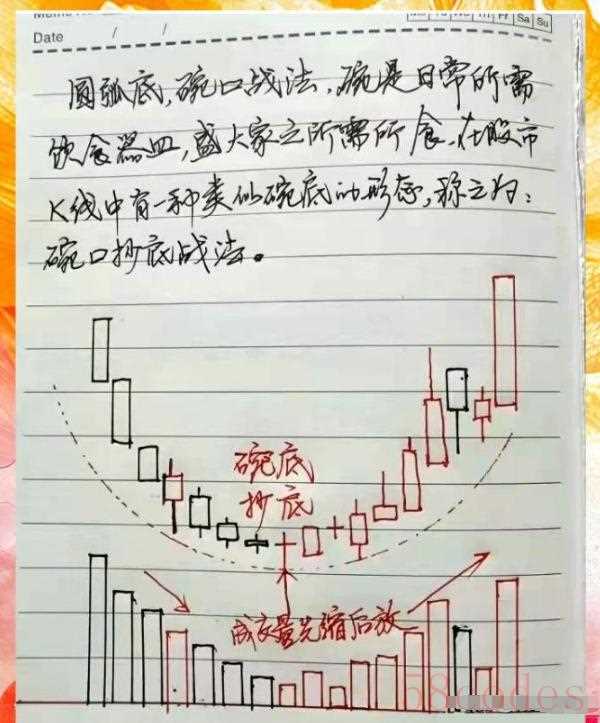 Date / /
Fr Sa Su
圆弧底,碗口战法,碗是日常所需
饮食器皿,盛大家之所需所食,在股市
K线中有一种类似碗底的形态,称之为:
碗口抄底战法。
碗底
抄底
成交量先缩后放
58codes